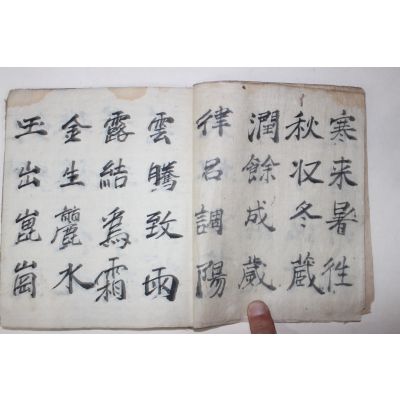 寒来暑往
秋収冬蔵
潤餘成歲
律呂調陽
雲騰致雨
露結爲霜
金生麗水
玉出崑崗